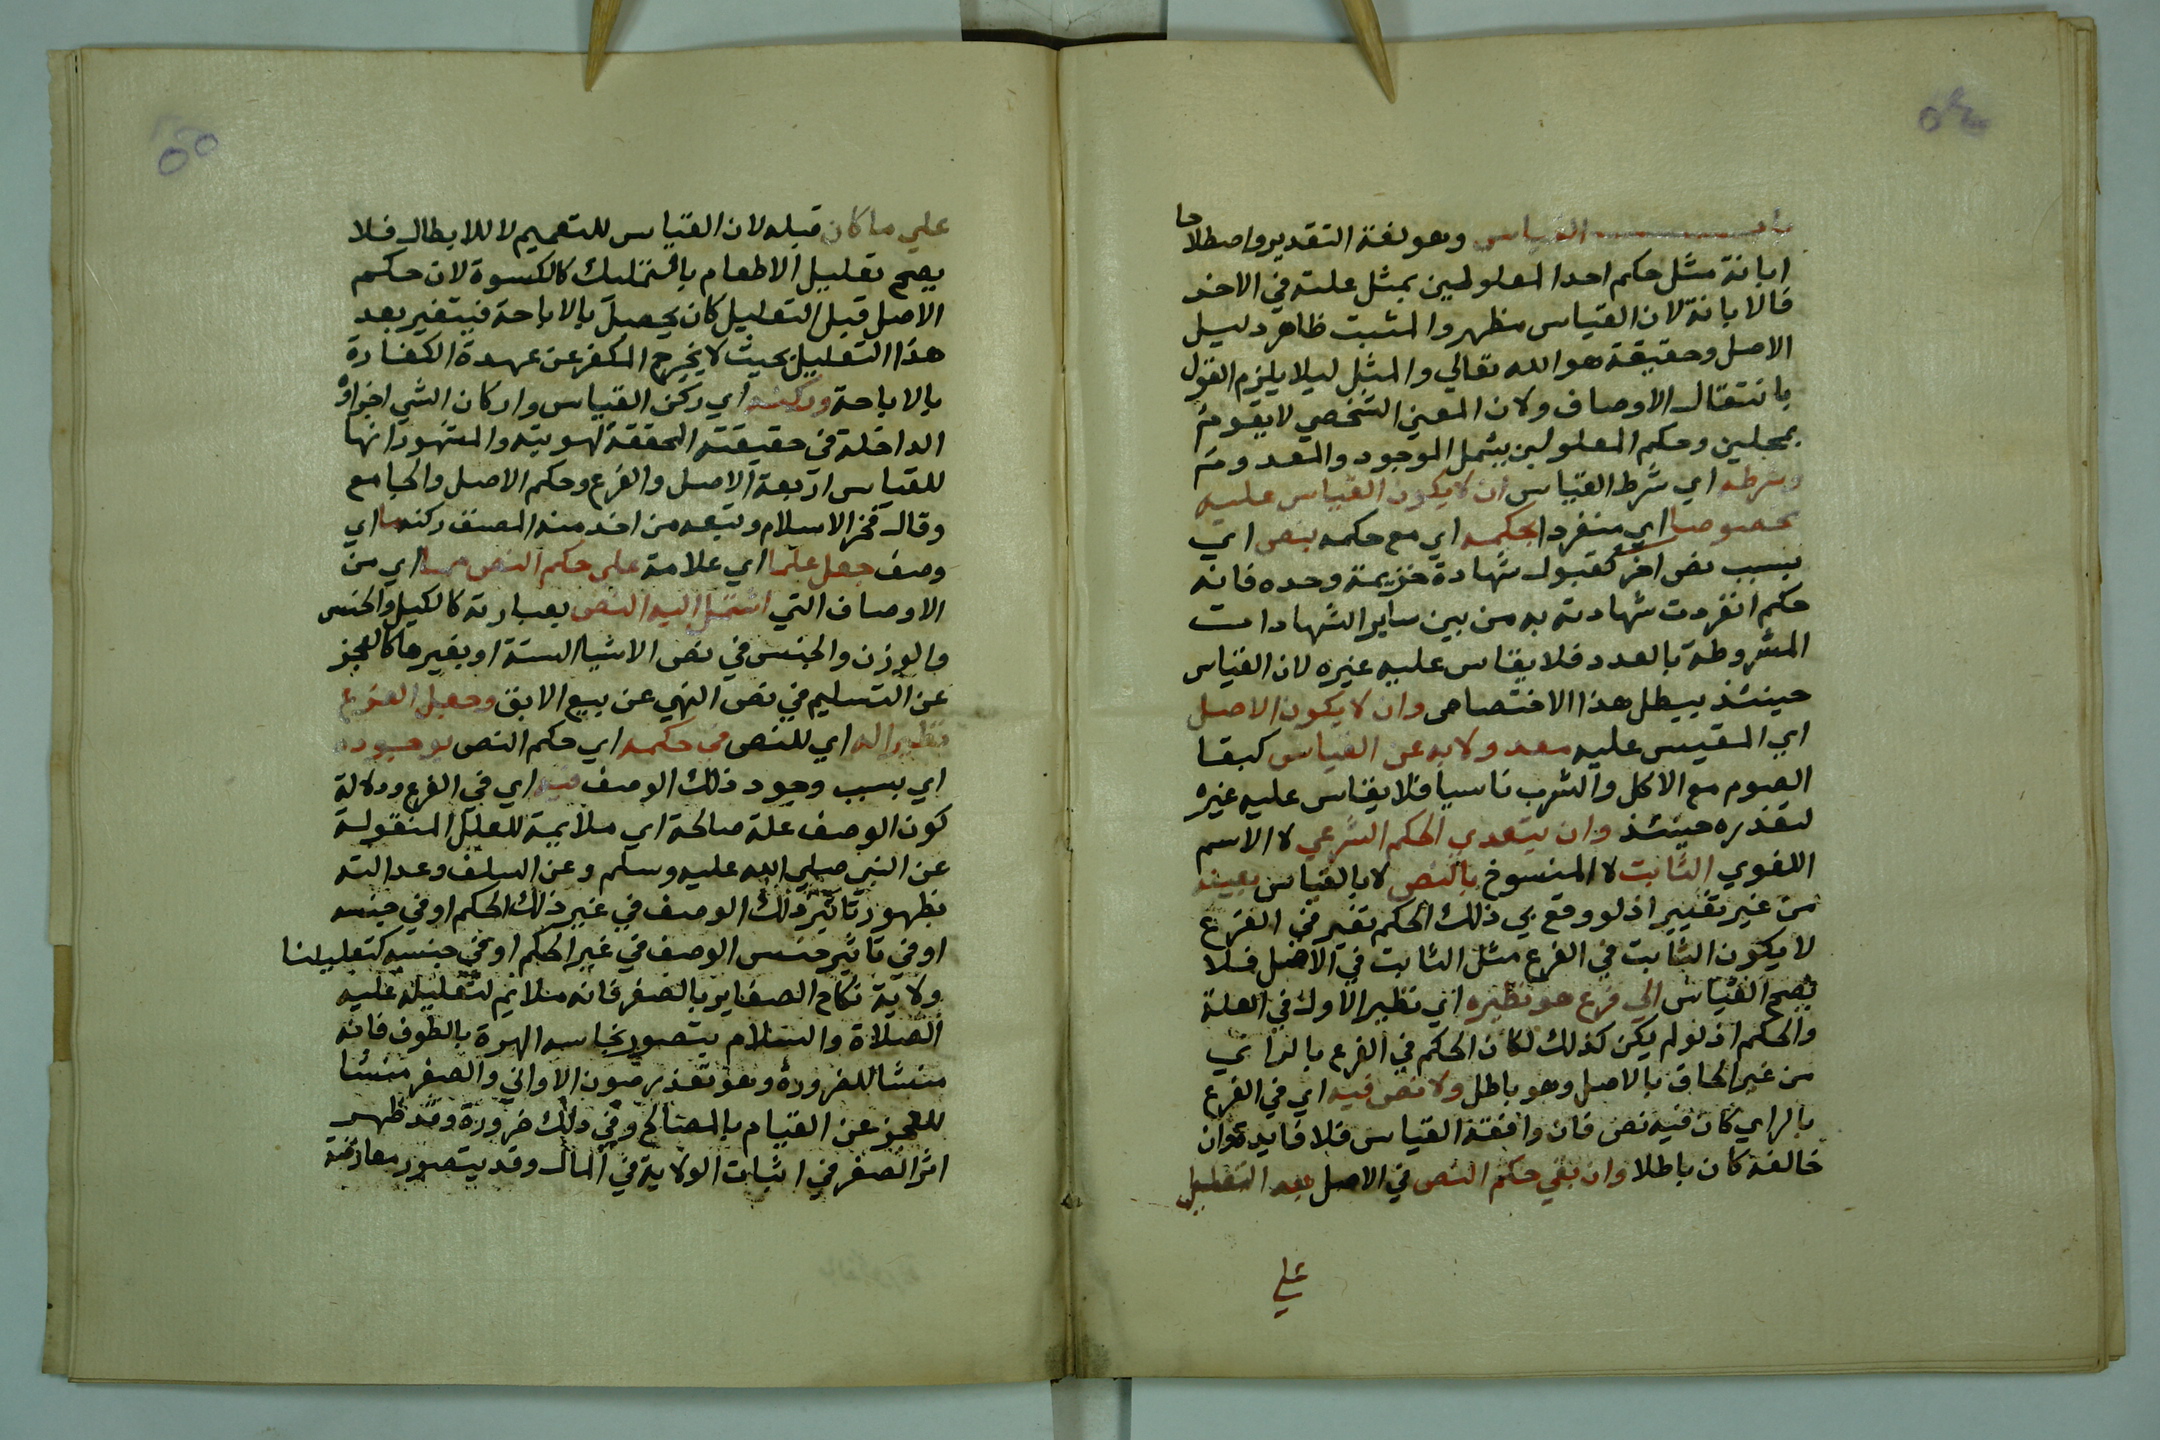 ٥٤
باب القياس وهو لغة التقدير واصطلاحا
ابانة مثل حكم احد المعلولين بمثل علته في الاخر
فالابانة لان القياس مظهر والمثبت ظاهر دليل
الاصل وحقيقة هو الله تعالي والمثل ليلا يلزم القول
بانتقال الاوصاف ولان المعني الشخصي لا يقوم
بمحلين وحكم المعلولين يشمل الموجود والمعدوم
وشرطه اي شرط القياس ان لا يكون القياس عليه
مخصوصا اي منفردا بحكمه اي مع حكمه بنص اي
بسبب نص اخر كقبول شهادة خزيمة وحده فانه
حكم انفردت شهادته به من بين ساير الشهادات
المشروطة بالعدد فلا يقاس عليه غيره لان القياس
حينئذ يبطل هذا الاختصاص وان لا يكون الاصل
اي المقيس عليه معدولا به عن القياس كبقا
الصوم مع الاكل والشرب ناسيا فلا يقاس عليه غيره
لتعذره حينئذ وان يتعدي الحكم الشرعي لا الاسم
اللغوي الثابت لا المنسوخ بالنص لا بالقياس بعينه
من غير تغيير اذ لو وقع بي ذلك الحكم تغير في الفرع
لا يكون الثابت في الفرع مثل الثابت في الاصل فلا
يصح القياس الي فرع هو نظيره اي نظير الاول في العلة
والحكم اذ لو لم يكن كذلك لكان الحكم في الفرع بالراي
من غير الحاق بالاصل وهو باطل ولا نص فيه اي في الفرع
بالراي كان فيه نص فان وافقه القياس فلا فايدة وان
خالفه كان باطلا وان بقي حكم النص في الاصل بعد التعليل
علي
٥٥
علي ما كان قبله لان القياس للتعميم لا للابطال فلا
يصح تعليل الاطعام بالتمليك كالكسوة لان حكم
الاصل قبل التعليل كان يحصل بالاباحة فيتغير بعد
هذا التعليل بحيث لا يخرج المكفر عن عهدة الكفارة
بالاباحة وركنه اي ركن القياس واركان الشي اجزاؤه
الداخلة في حقيقته المحققة لهويته والمشهور انها
للقياس اربعة الاصل والفرع وحكم الاصل والجامع
وقال فخر الاسلام وتبعه من اخذ منه المصنف ركنه ما اي
وصف جعل علما اي علامة علي حكم النص مما اي من
الاوصاف التي اشتمل اليه النص بعبارته كالكيل والجنس
والوزن والجنس في نص الاشيا الستة او بغيرها كالعجز
عن التسليم في نص النهي عن بيع الابق وجعل الفرع
نظيرا له اي للنص في حكمه اي حكم النص بوجوده
اي بسبب وجود ذلك الوصف فيه اي في الفرع ودلالة
كون الوصف علة صالحة اي ملايمة للعلل المنقولة
عن النبي صلي الله عليه وسلم وعن السلف وعدالته
بظهور تاثير ذلك الوصف في غير ذلك الحكم او في جنسه
او في تاثير جنس الوصف في غير الحكم او في جنسه كتعليلنا
ولاية نكاح الصغاير بالصغر فانه ملايم لتعليله عليه
الصلاة والسلام بتصور نجاسة الهرة بالطوف فانه
منشا للضرورة وهو تعذر صون الاواني والصغر منشا
للعجز عن القيام بالمصالح وفي ذلك ضرورة وقد ظهر
اثر الصغر في اثبات الولاية في المال وقد يتصور معارضة